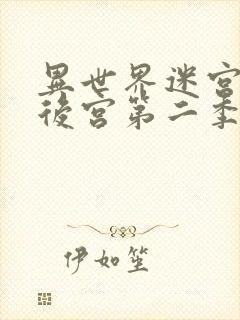 異世界迷宮
後宮第二季
伊如笙